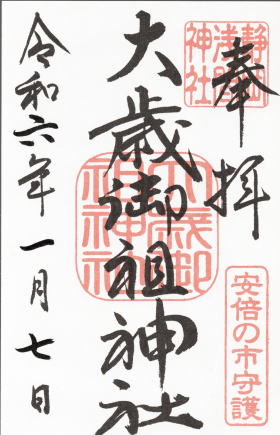 奉拝
静岡浅間神社
安倍の市守護
大歳御祖神社
大歳御祖神社
令和六年一月七日